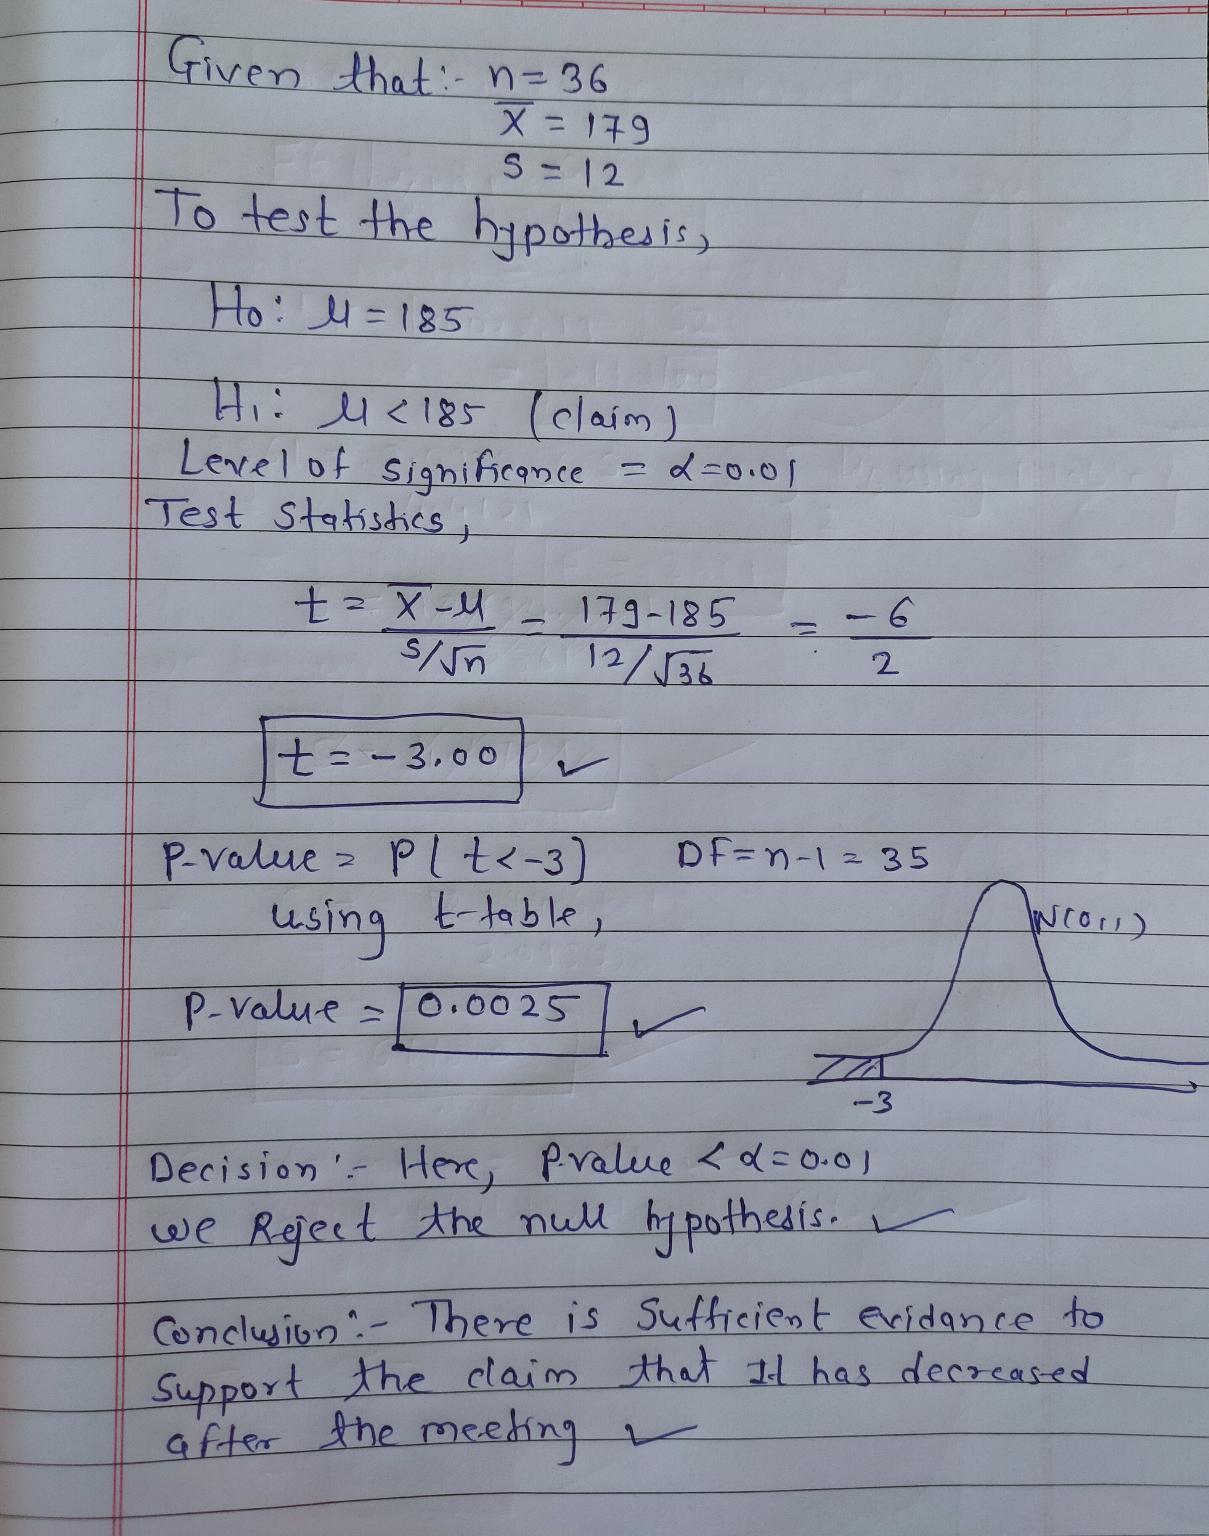 Given that:- n = 36
x̄ = 179
S = 12
To test the hypothesis,
H0: μ = 185
H1: μ < 185 (claim)
Level of significance = α = 0.01
Test Statistics,
t = x̄-μ / s/√n = 179-185 / 12/√36 = -6 / 2
t = -3.00 ✓
P-value = P( t<-3) DF = n-1 = 35
using t-table,
N(0,1)
P-value = 0.0025 ✓
-3
Decision :- Here, P-value < α = 0.01
we Reject the null hypothesis. ✓
Conclusion :- There is Sufficient evidance to
Support the claim that It has decreased
after the meeting ✓